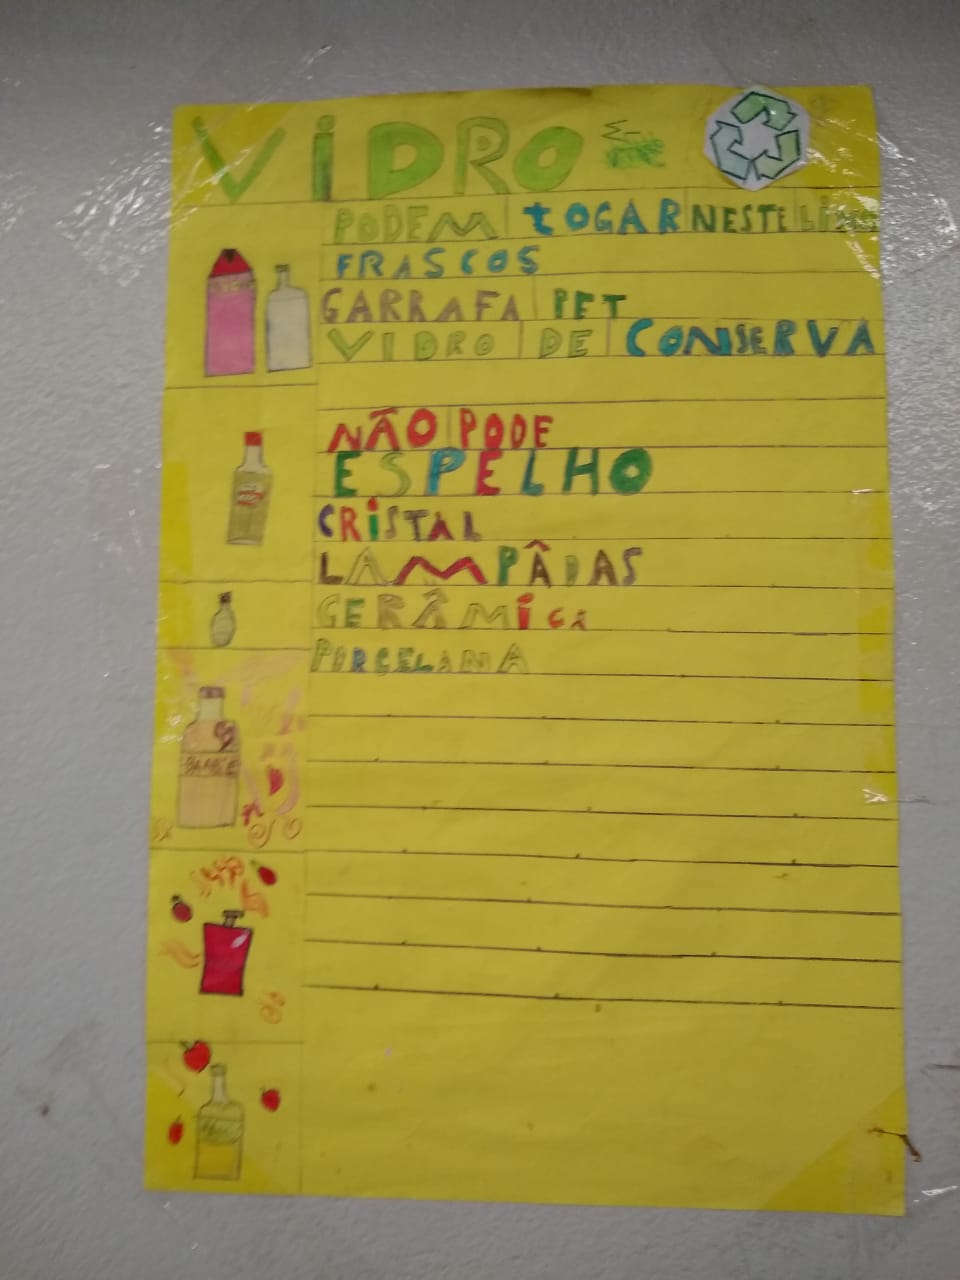 VIDRO
PODEM TOGAR NESTE LIXO
FRASCOS
GARRAFA PET
VIDRO DE CONSERVA
NÃO PODE
ESPELHO
CRISTAL
LAMPÂDAS
CERÂMICA
PORCELANA